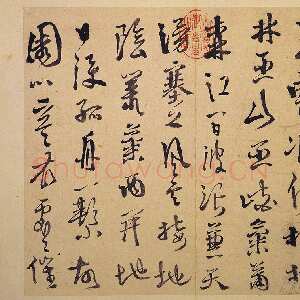 林巫山巫峽氣蕭
森江間波浪兼天
湧塞上風雲接地
陰叢菊兩開他
日淚孤舟一繫故
園心寒衣處々催